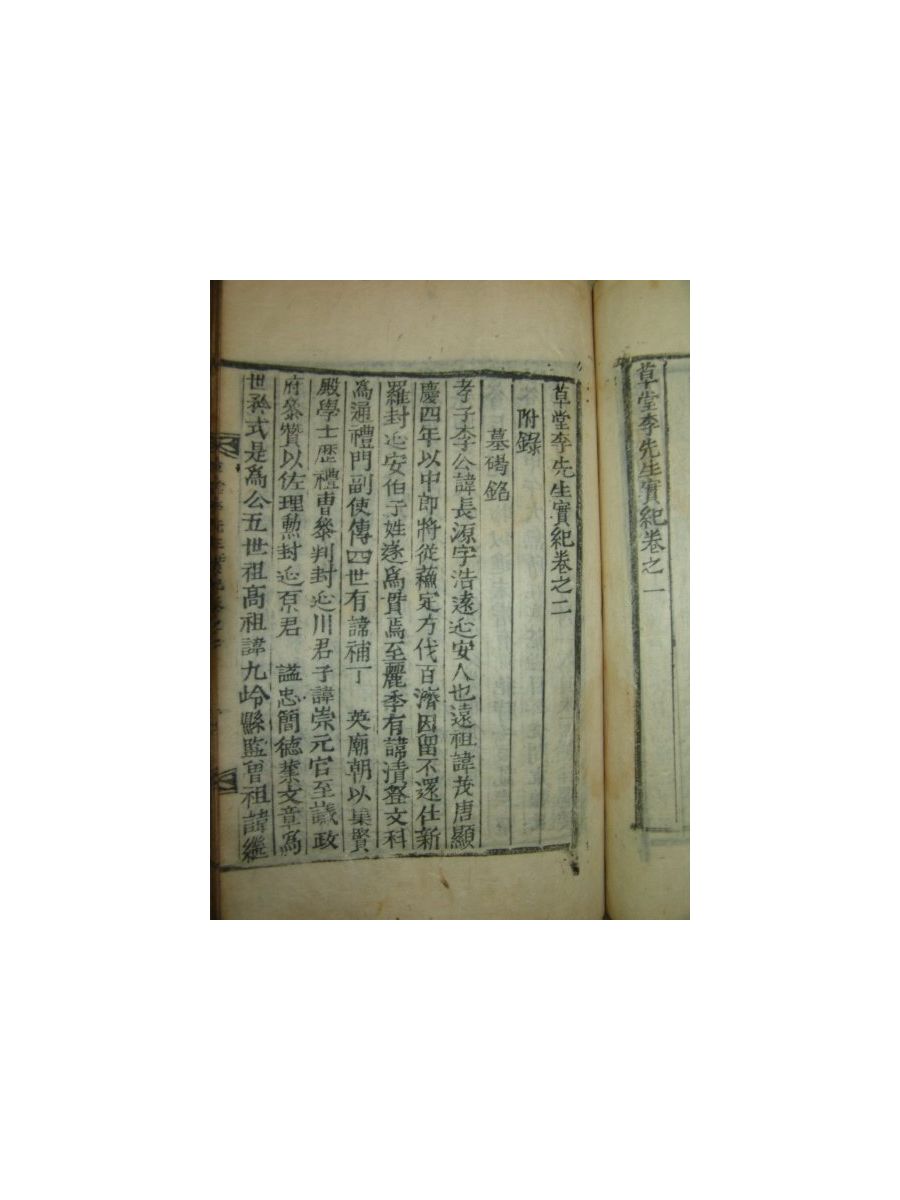 草堂李先生實紀卷之一
草堂李先生實紀卷之二
附錄
墓碣銘
孝子李公諱長源字浩遠延安人也遠祖諱茂唐顯
慶四年以中郎將從蘇定方伐百濟因留不還仕新
羅封延安伯子姓遂爲貫焉至麗季有諱淸登文科
爲通禮門副使傳四世有諱補丁 英廟朝以集賢
殿學士歷禮曹叅判封延川君子諱崇元官至議政
府叅贊以佐理勲封延原君 謚忠簡德業文章爲
世矜式是爲公五世祖高祖諱九岭縣監曾祖諱繼